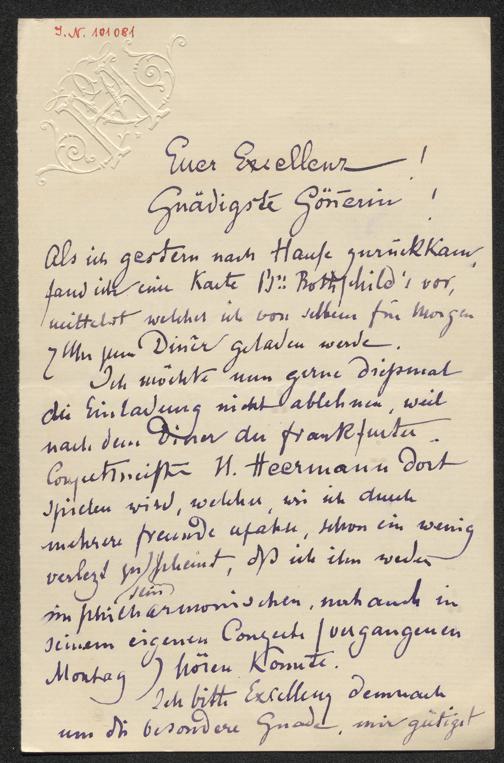 J. N. 101081
Euer Excellenz !
Gnädigste Gönnerin !
Als ich gestern nach Hause zurückkam,
fand ich eine Karte Bn. Rothschild's vor,
mittelst welcher ich von selbem für Morgen
7 Uhr zum Dinér geladen werde.
Ich möchte nun gerne dießmal
die Einladung nicht ablehnen, weil
nach dem Diner der frankfurter
Conzertmeister H. Heermann dort
spielen wird, welcher, wie ich durch
mehrere freunde erfahre, schon ein wenig
verlezt zu sein scheint, dß ich ihn weder
im philharmonischen, noch auch in
seinem eigenen Conzerte (vergangenen
Montag) hören konnte.
Ich bitte Excellenz demnach
um die besondere Gnade, mir gütigst